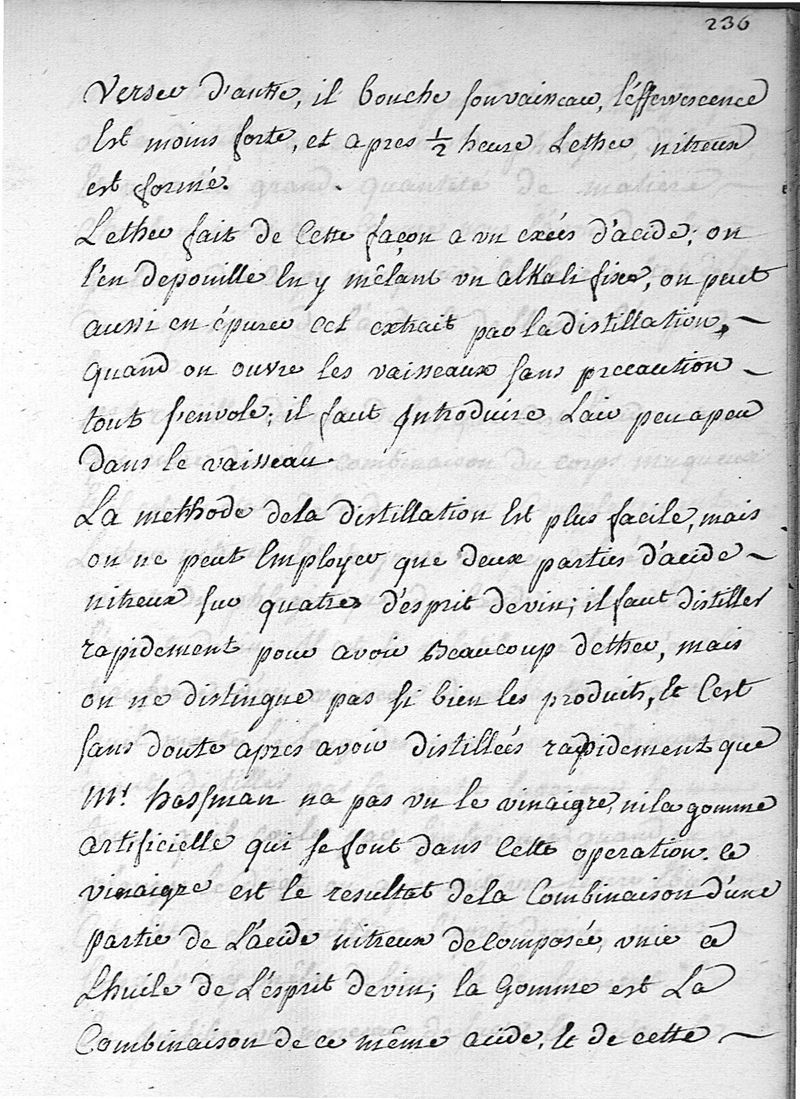 236
verser d'autre, il bouche son vaisseau, l'éffervescence
Est moins forte, et apres ½ heure Lether nitreux
est formé.
Lether fait de Cette façon a un excés d'acide; on
l'en depouille En y mêlant un alkali fixe, on peut
aussi en épurer cet extrait par la distillation,
quand on ouvre les vaisseaux sans precaution
tout s'envole; il faut Introduire Lair peu a peu
dans le vaisseau.
La methode de la distillation Est plus facile, mais
on ne peut Employer que deux parties d'acide
nitreux sur quatres d'esprit de vin; il faut distiller
rapidement pour avoir Beaucoup dether, mais
on ne distingue pas si bien les produits, & C'est
sans doute apres avoir distillés rapidement que
Mr. hassman na pas vu le vinaigre, ni la gomme
artificielle qui se font dans Cette operation. ce
vinaigre est le resultat de la Combinaison d'une
partie de L'acide nitreux decomposée, unie a
Lhuile de L'ésprit de vin; la Gomme est La
Combinaison de ce même acide, & de cette